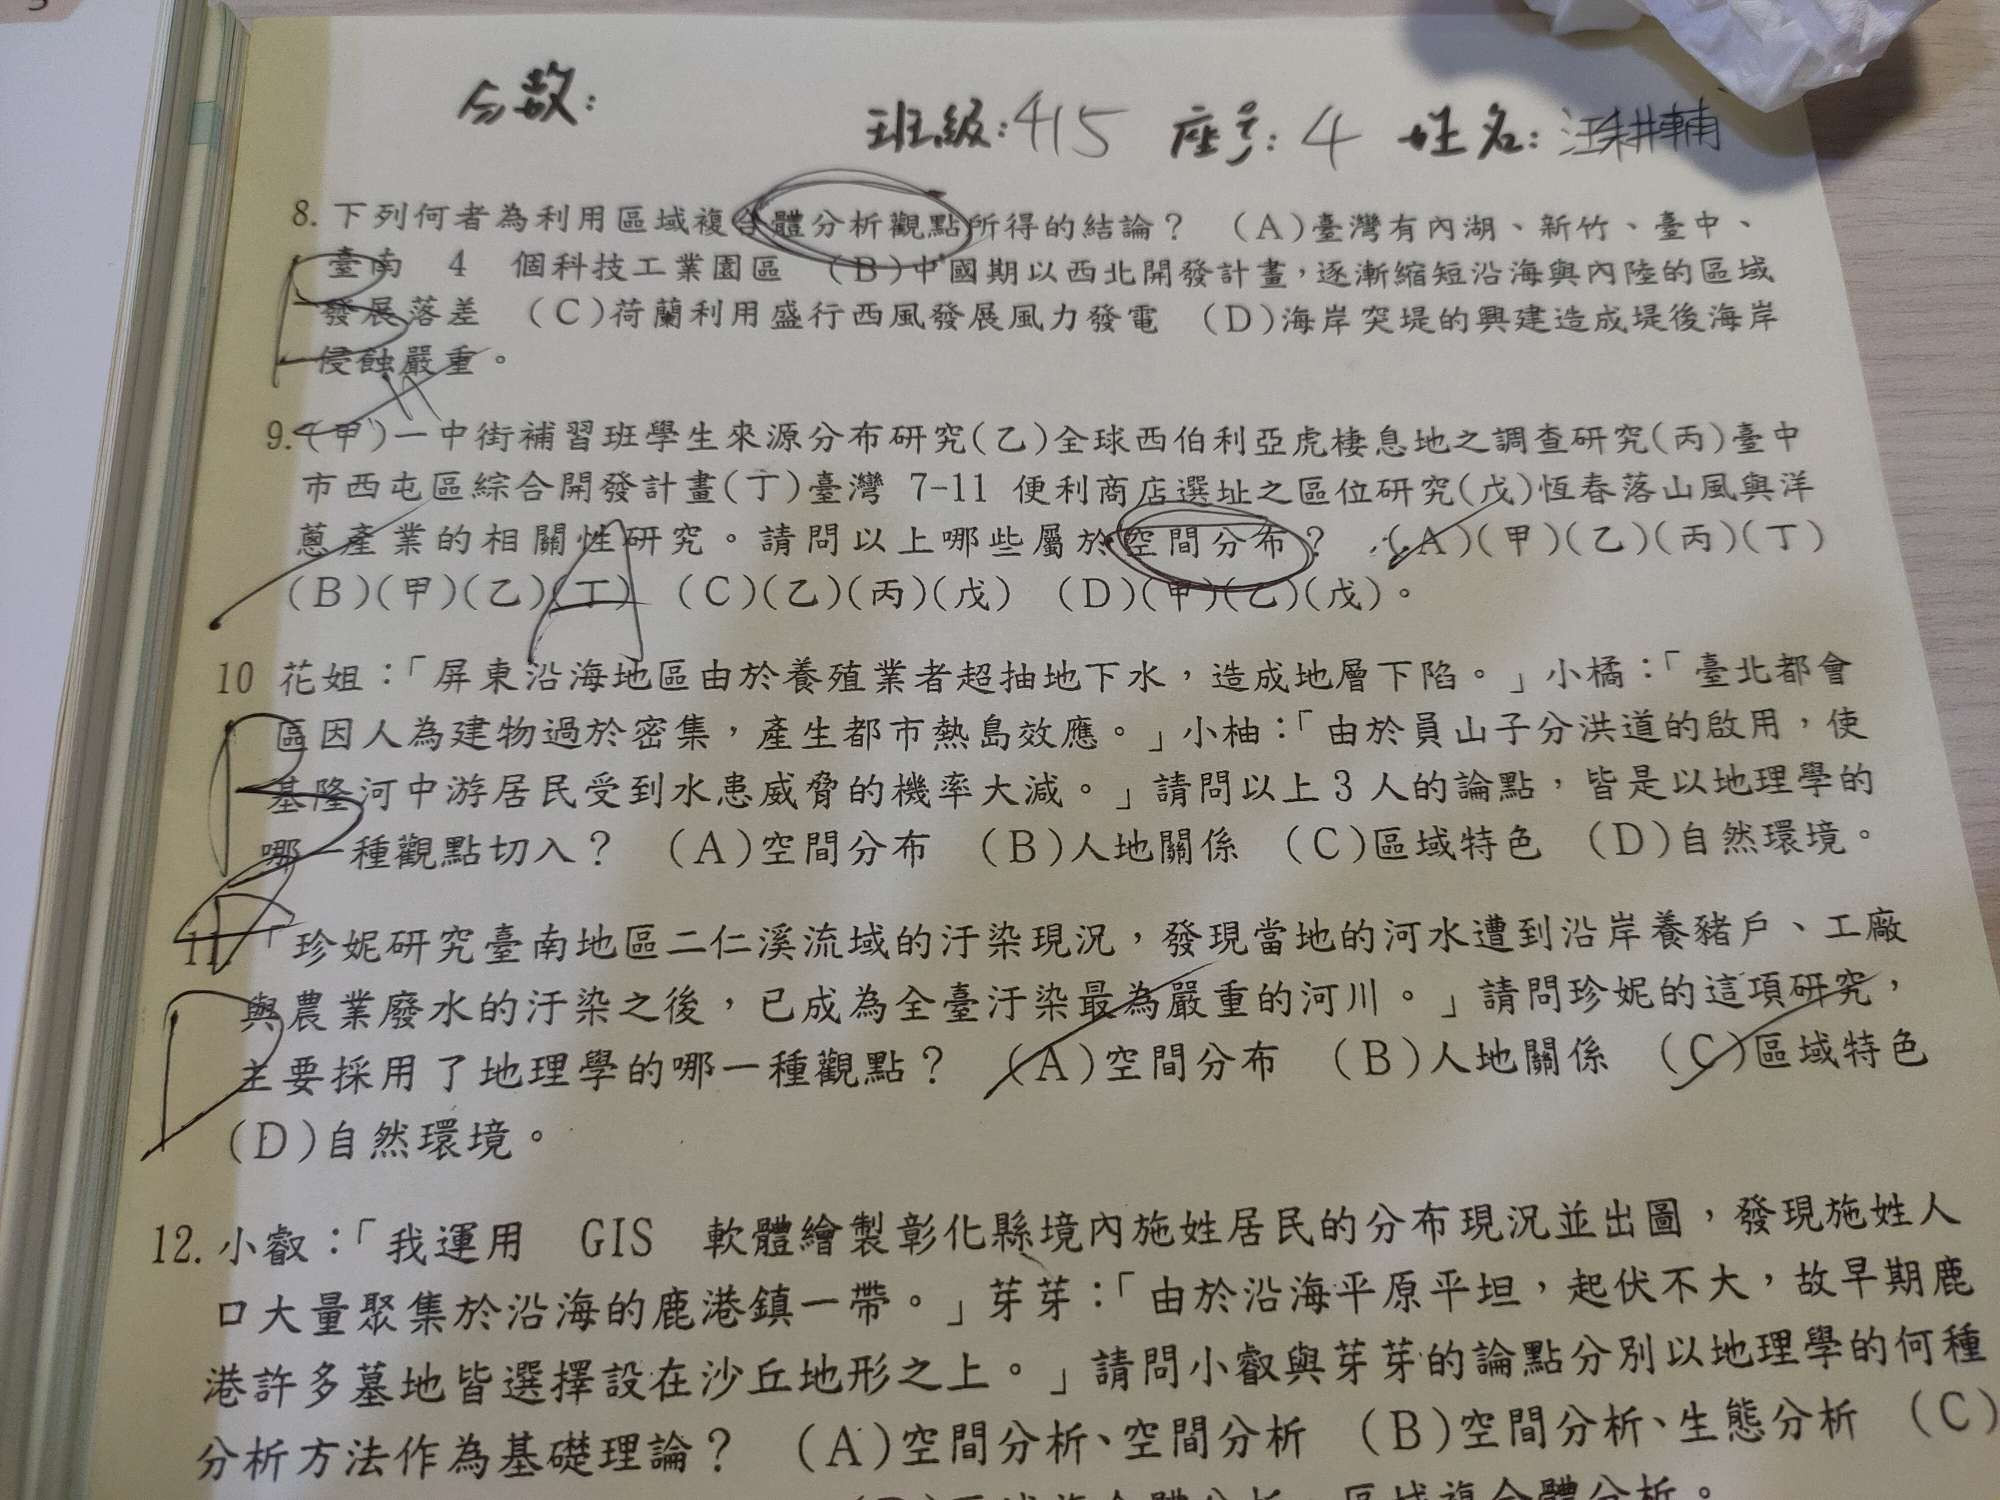 分數:
班級:415 座号:4 姓名:汪耕輔
8.下列何者為利用區域複合體分析觀點所得的結論? (A)臺灣有內湖、新竹、臺中、
臺南 4 個科技工業園區 (B)中國期以西北開發計畫,逐漸縮短沿海與內陸的區域
發展落差 (C)荷蘭利用盛行西風發展風力發電 (D)海岸突堤的興建造成堤後海岸
侵蝕嚴重。
9.(甲)一中街補習班學生來源分布研究(乙)全球西伯利亞虎棲息地之調查研究(丙)臺中
市西屯區綜合開發計畫(丁)臺灣 7-11 便利商店選址之區位研究(戊)恆春落山風與洋
蔥產業的相關性研究。請問以上哪些屬於空間分布? (A)(甲)(乙)(丙)(丁)
(B)(甲)(乙)(丁) (C)(乙)(丙)(戊) (D)(甲)(乙)(戊)。
A
10 花姐:「屏東沿海地區由於養殖業者超抽地下水,造成地層下陷。」小橘:「臺北都會
區因人為建物過於密集,產生都市熱島效應。」小柚:「由於員山子分洪道的啟用,使
B
基隆河中游居民受到水患威脅的機率大減。」請問以上3人的論點,皆是以地理學的
哪一種觀點切入? (A)空間分布 (B)人地關係 (C)區域特色 (D)自然環境。
11.「珍妮研究臺南地區二仁溪流域的汙染現況,發現當地的河水遭到沿岸養豬戶、工廠
與農業廢水的汙染之後,已成為全臺汙染最為嚴重的河川。」請問珍妮的這項研究,
主要採用了地理學的哪一種觀點? (A)空間分布 (B)人地關係 (C)區域特色
(D)自然環境。
12.小叡:「我運用 GIS 軟體繪製彰化縣境內施姓居民的分布現況並出圖,發現施姓人
口大量聚集於沿海的鹿港鎮一帶。」芽芽:「由於沿海平原平坦,起伏不大,故早期鹿
港許多墓地皆選擇設在沙丘地形之上。」請問小叡與芽芽的論點分別以地理學的何種
分析方法作為基礎理論? (A)空間分析、空間分析 (B)空間分析、生態分析 (C)
區域複合體分析。